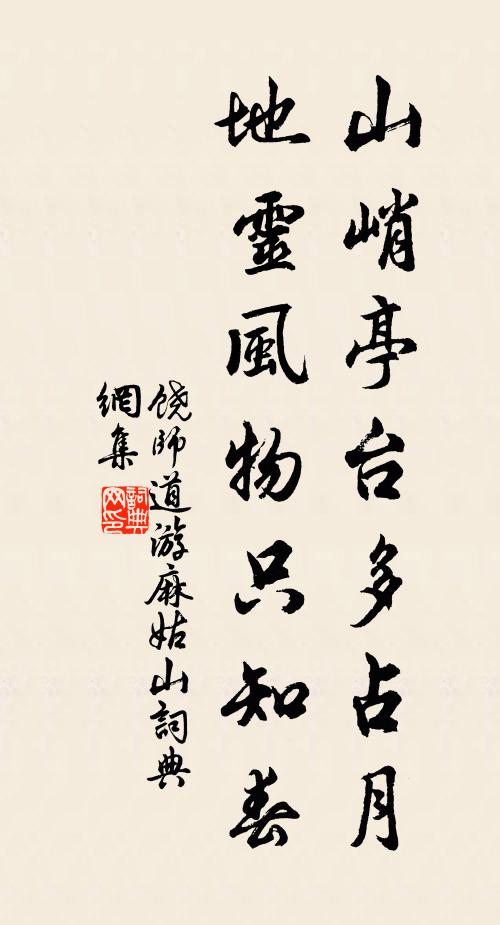 山峭亭台多占月
地靈風物只知春
饶師道游麻姑山詞典
網集
詞典
网印